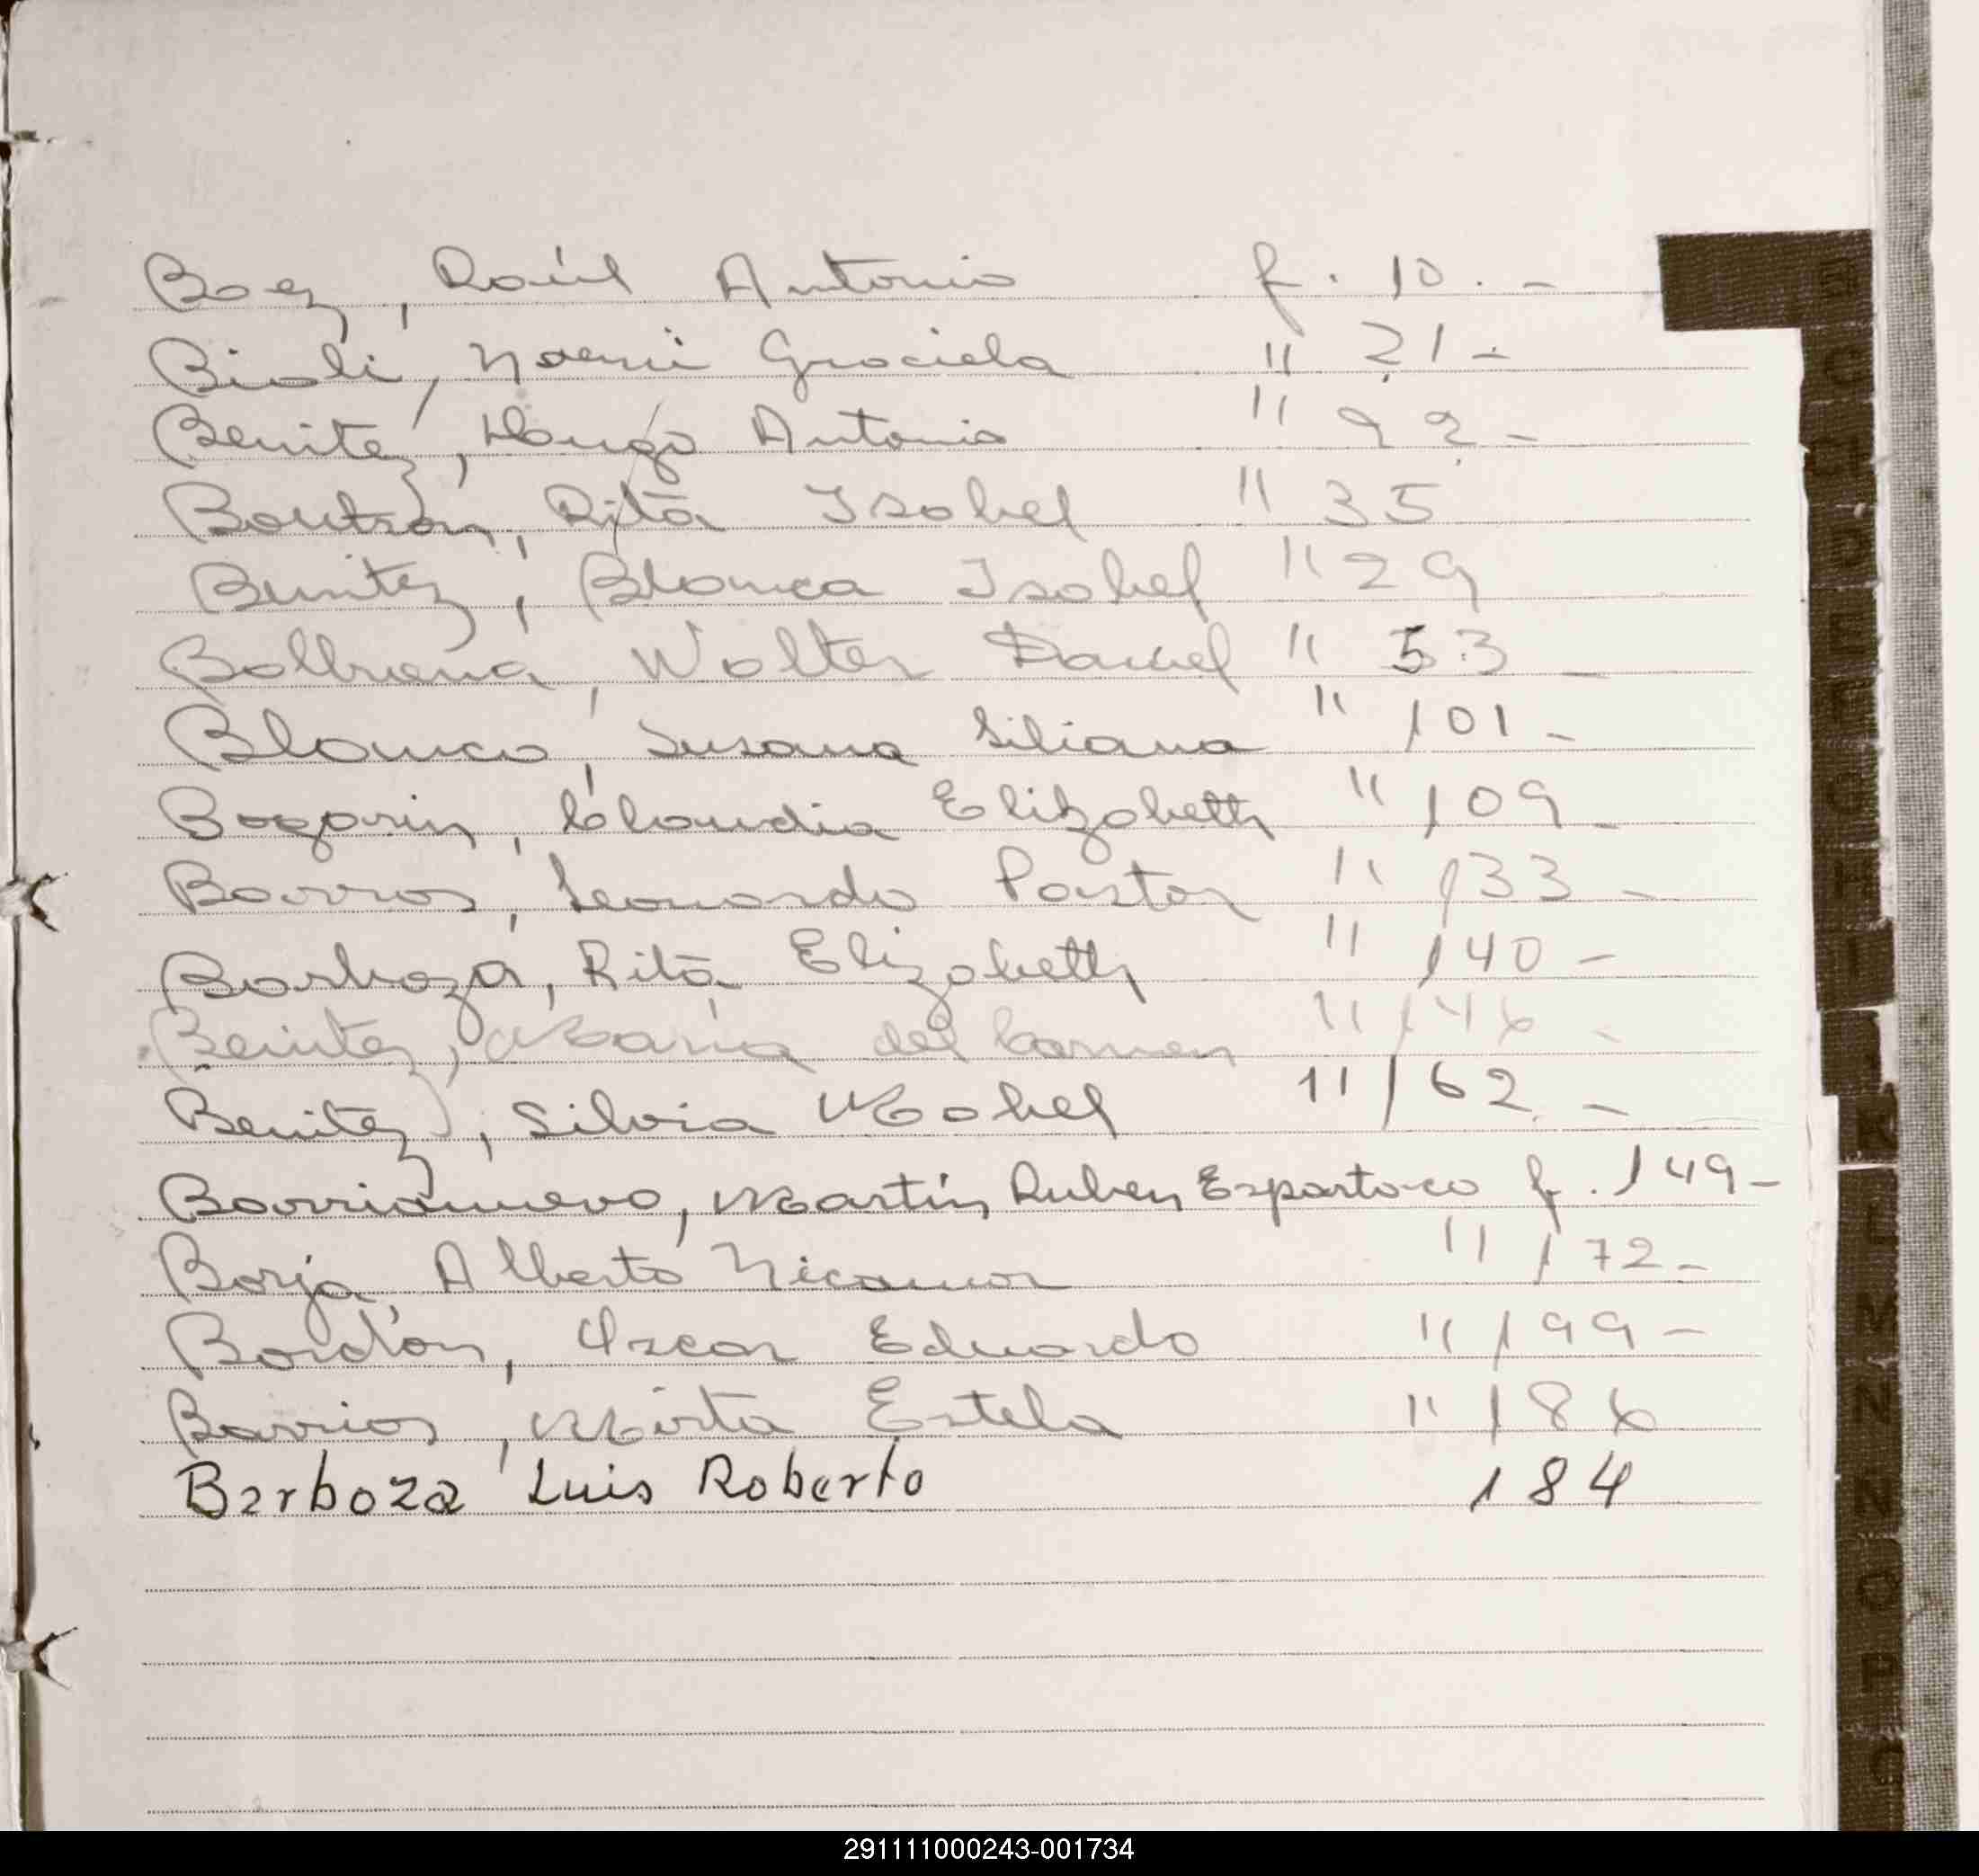 Baez, Raúl Antonio f. 10.-
Bioli, Noemi Graciela " 21-
Benitez, Hugo Antonio " 22-
Beutron, Rita Isabel " 35
Benitez, Blanca Isabel " 29
Balbuena, Walter Daniel " 53 -
Blanco, Susana Liliana " 101-
Bogarin, Claudia Elizabeth " 109-
Barros, Leonardo Pastor " 133-
Barboza, Rita Elizabeth " 140-
Benitez, Maria del Carmen " 146 -
Benitez, Silvia Mabel " 162 -
Barrionuevo, Martín Ruben Espartaco f. 149-
Borja, Alberto Nicanor " 172-
Bordón, Oscar Eduardo " 199-
Barrios, Mirta Estela " 186
Barboza Luis Roberto 184
291111000243-001734